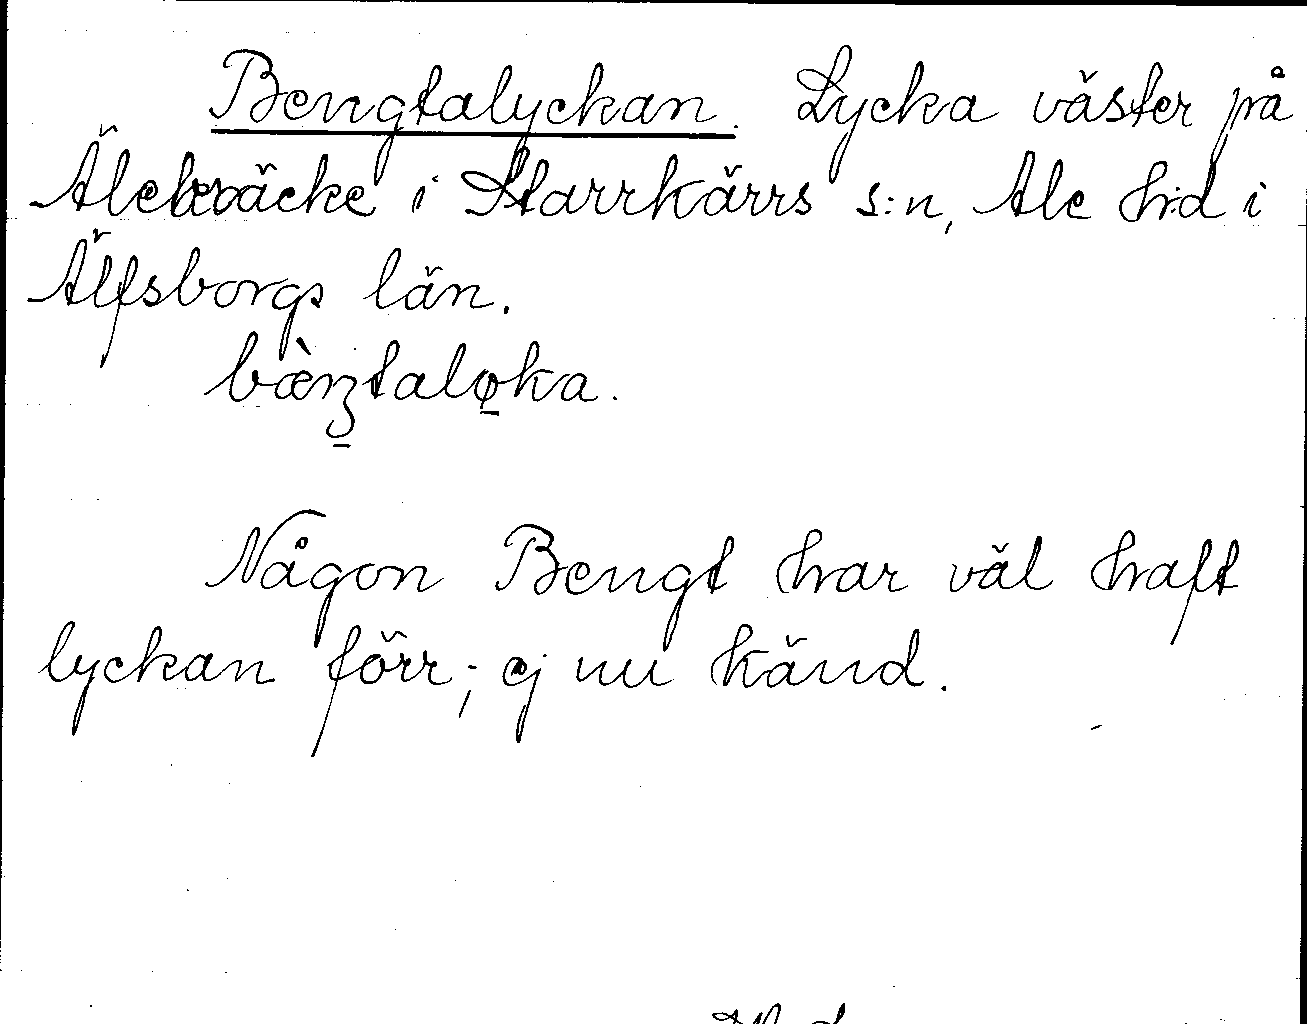 Bengtalyckan. Lycka väster på
Älekräcke i Starrkärrs s:n, Ale h:d i
Älfsborgs län.
bæ̀nʒtaløka.
Någon Bengt har väl haft
lyckan förr; ej nu känd.